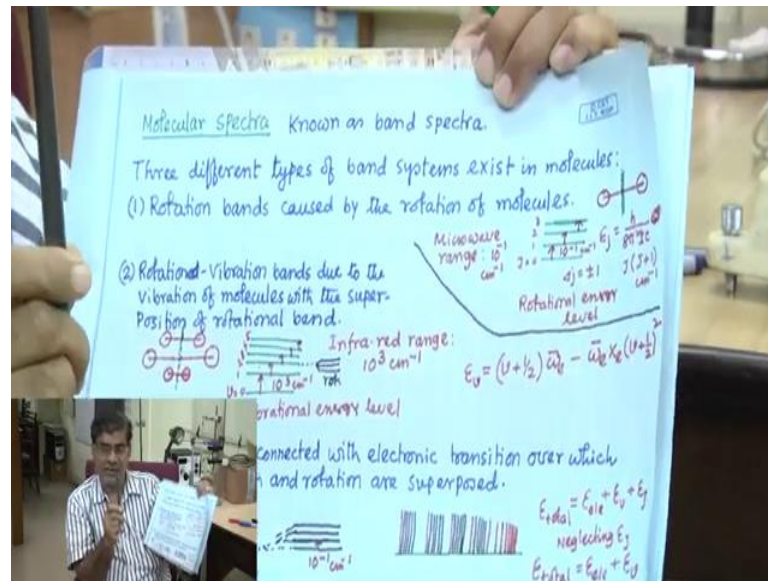 Molecular Spectra Known as band spectra.
Three different types of band systems exist in molecules:
(1) Rotation bands caused by the rotation of molecules.
Microwave
range: 10⁻¹
cm⁻¹
3
2
1
J = 0
10⁻¹ cm⁻¹
ΔJ = ±1
Rotational energy
level
Ej = h / 8π²Ic
J(J+1)
cm⁻¹
(2) Rotational-Vibration bands due to the
vibration of molecules with the super-
Position of rotational band.
10³ cm⁻¹
rot
Infra-red range:
10³ cm⁻¹
brational energy level
Ev = (v+1/2) ω̄e − ω̄e xe (v+1/2)²
connected with electronic transition over which
n and rotation are superposed.
10⁻¹ cm⁻¹
Etotal = Eele + Ev + Ej
Neglecting Ej
Etotal = Eele + Ev